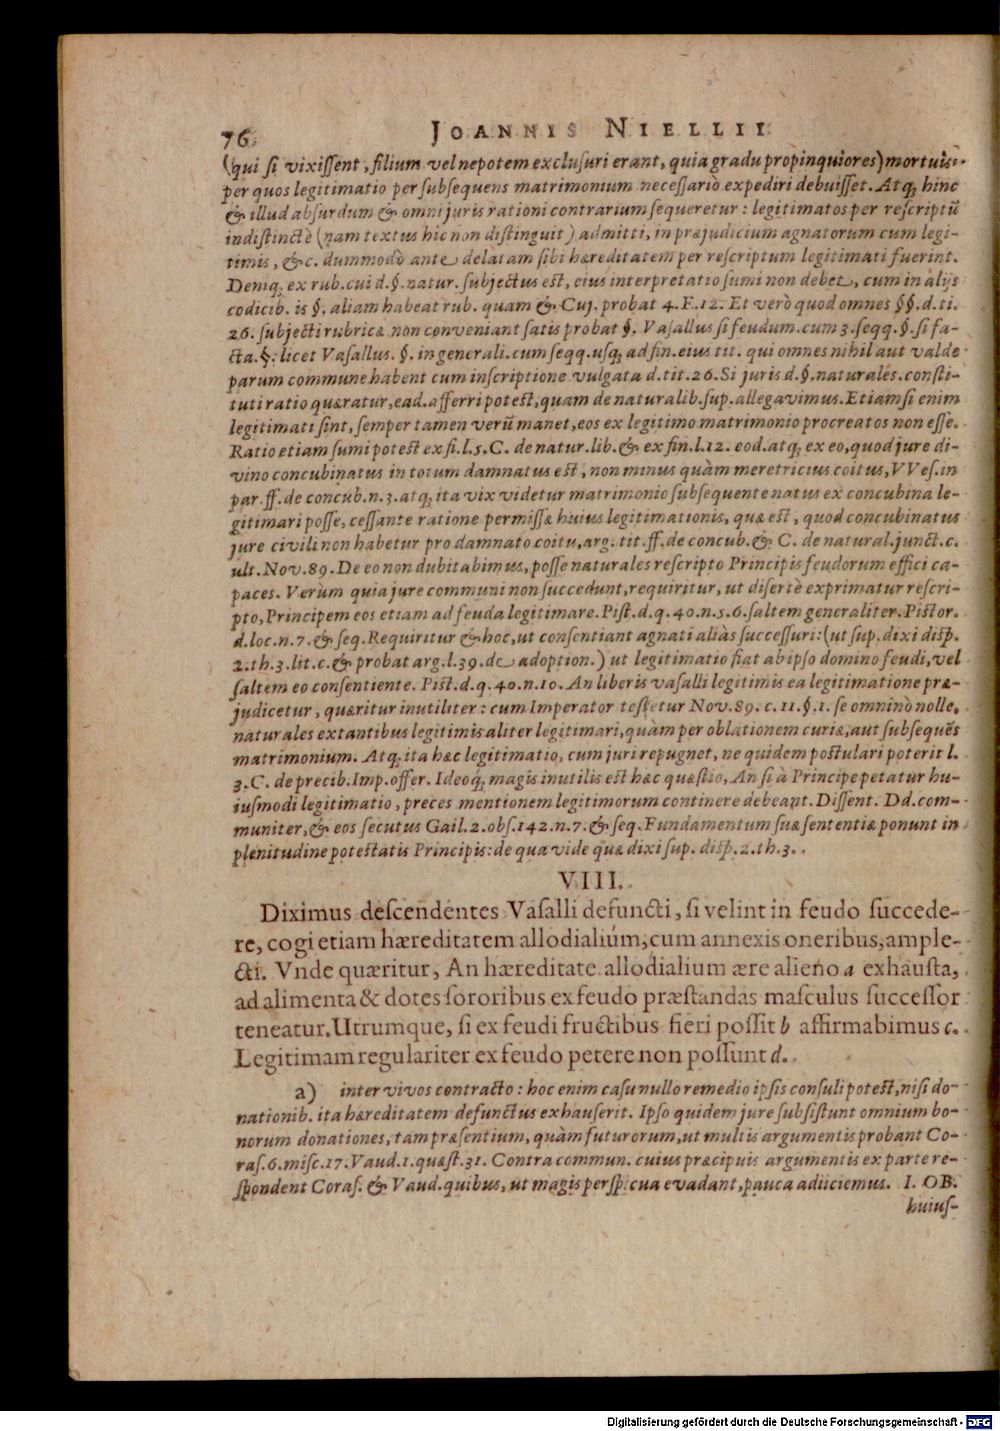 76. JOANNIS NIELLII
(qui ſi vixiſſent, filium vel nepotem excluſuri erant, quia gradu propinquiores) mortui:
per quos legitimatio per ſubſequens matrimonium neceſſariò expediri debuiſſet. Atq; hinc
& illud abſurdum & omni juris rationi contrarium ſequeretur: legitimatos per reſcriptũ
indiſtinctè (nam textus hic non diſtinguit) admitti, in præjudicium agnatorum cum legi-
timis, &c. dummodò ante delatam ſibi hæreditatem per reſcriptum legitimati fuerint.
Deniq; ex rub. cui d. §. natur. ſubjectus eſt, eius interpretatio ſumi non debet, cum in alijs
codicib. is §. aliam habeat rub. quam & Cuj. probat 4. F. 12. Et verò quod omnes §§. d. ti.
26. ſubjecti rubricæ non conveniant ſatis probat §. Vaſallus ſi feudum. cum 3. ſeqq. §. ſi fa-
cta. §. licet Vaſallus. §. in generali. cum ſeqq. uſq; ad fin. eius tit. qui omnes nihil aut valde
parum commune habent cum inſcriptione vulgata d. tit. 26. Si juris d. §. naturales. conſti-
tuti ratio quæratur, ead. afferri poteſt, quam de naturalib. ſup. allegavimus. Etiamſi enim
legitimati ſint, ſemper tamen verũ manet, eos ex legitimo matrimonio procreatos non eſſe.
Ratio etiam ſumi poteſt ex fi. l. 5. C. de natur. lib. & ex fin. l. 12. eod. atq; ex eo, quod jure di-
vino concubinatus in totum damnatus eſt, non minus quàm meretricius coitus, VVeſ. in
par. ff. de concub. n. 3. atq; ita vix videtur matrimonio ſubſequente natus ex concubina le-
gitimari poſſe, ceſſante ratione permiſſæ huius legitimationis, quæ eſt, quod concubinatus
jure civili non habetur pro damnato coitu, arg. tit. ff. de concub. & C. de natural. junct. c.
ult. Nov. 89. De eo non dubitabimus, poſſe naturales reſcripto Principis feudorum effici ca-
paces. Verùm quia jure communi non ſuccedunt, requiritur, ut diſertè exprimatur reſcri-
pto, Principem eos etiam ad feuda legitimare. Piſt. d. q. 40. n. 5. 6. ſaltem generaliter. Piſtor.
d. loc. n. 7. & ſeq. Requiritur & hoc, ut conſentiant agnati aliàs ſucceſſuri: (ut ſup. dixi diſp.
2. th. 3. lit. c. & probat arg. l. 39. de adoption.) ut legitimatio fiat ab ipſo domino feudi, vel
ſaltem eo conſentiente. Piſt. d. q. 40. n. 10. An liberis vaſalli legitimis ea legitimatione præ-
judicetur, quæritur inutiliter: cum Imperator teſtetur Nov. 89. c. 11. §. 1. ſe omninò nolle,
naturales extantibus legitimis aliter legitimari, quàm per oblationem curiæ, aut ſubſequẽs
matrimonium. Atq; ita hæc legitimatio, cum juri repugnet, ne quidem poſtulari poterit l.
3. C. de precib. Imp. offer. Ideoq; magis inutilis eſt hæc quæſtio, An ſi à Principe petatur hu-
iuſmodi legitimatio, preces mentionem legitimorum continere debeant. Diſſent. Dd. com-
muniter, & eos ſecutus Gail. 2. obſ. 142. n. 7. & ſeq. Fundamentum ſuæ ſententiæ ponunt in
plenitudine poteſtatis Principis: de qua vide quæ dixi ſup. diſp. 2. th. 3.
VIII.
Diximus deſcendentes Vaſalli defuncti, ſi velint in feudo ſuccede-
re, cogi etiam hæreditatem allodialium, cum annexis oneribus,ample-
cti. Vnde quæritur, An hæreditate allodialium ære alieno a exhauſta,
ad alimenta & dotes ſororibus ex feudo præſtandas maſculus ſucceſſor
teneatur. Utrumque, ſi ex feudi fructibus fieri poſſit b affirmabimus c.
Legitimam regulariter ex feudo petere non poſſunt d.
a) inter vivos contracto: hoc enim caſu nullo remedio ipſis conſuli poteſt, niſi do-
nationib. ita hæreditatem defunctus exhauſerit. Ipſo quidem jure ſubſiſtunt omnium bo-
norum donationes, tam præſentium, quàm futurorum, ut multis argumentis probant Co-
raſ. 6. miſc. 17. Vaud. 1. quæſt. 31. Contra commun. cuius præcipuis argumentis ex parte re-
ſpondent Coraſ. & Vaud. quibus, ut magis perſpicua evadant, pauca adiiciemus. I. OB.
huiuſ-
Digitalisierung gefördert durch die Deutsche Forschungsgemeinschaft - DFG